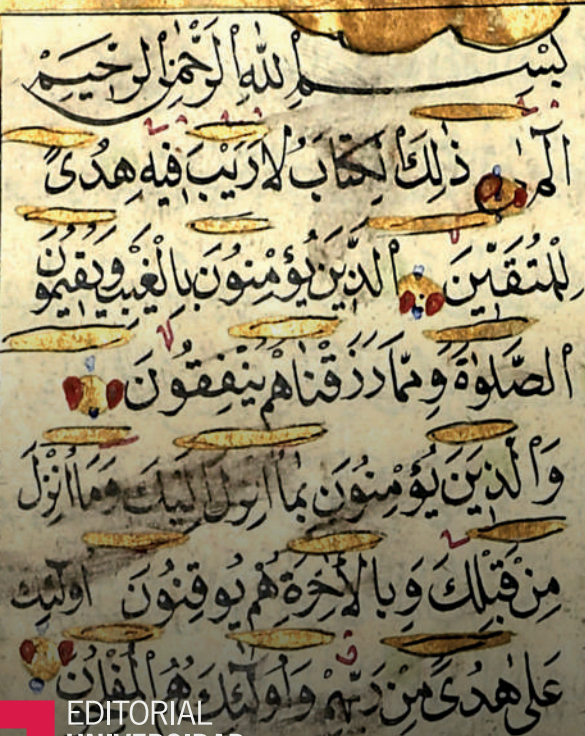 بِسْمِ اللهِ الرَّحْمٰنِ الرَّحِيْمِ
الٓمٓ ذٰلِكَ الْكِتَابُ لَارَيْبَ فِيْهِ هُدًى
لِلْمُتَّقِيْنَ اَلَّذِيْنَ يُؤْمِنُوْنَ بِالْغَيْبِ وَيُقِيْمُوْنَ
الصَّلٰوةَ وَمِمَّا رَزَقْنَاهُمْ يُنْفِقُوْنَ
وَالَّذِيْنَ يُؤْمِنُوْنَ بِمَا اُنْزِلَ اِلَيْكَ وَمَا اُنْزِلَ
مِنْ قَبْلِكَ وَبِالْاٰخِرَةِ هُمْ يُوْقِنُوْنَ اولٓئك
عَلٰى هُدًى مِنْ رَبِّهِمْ وَاُولٓئِكَ هُمُ الْمُفْلِحُوْنَ
EDITORIAL
UNIVERSIDAD